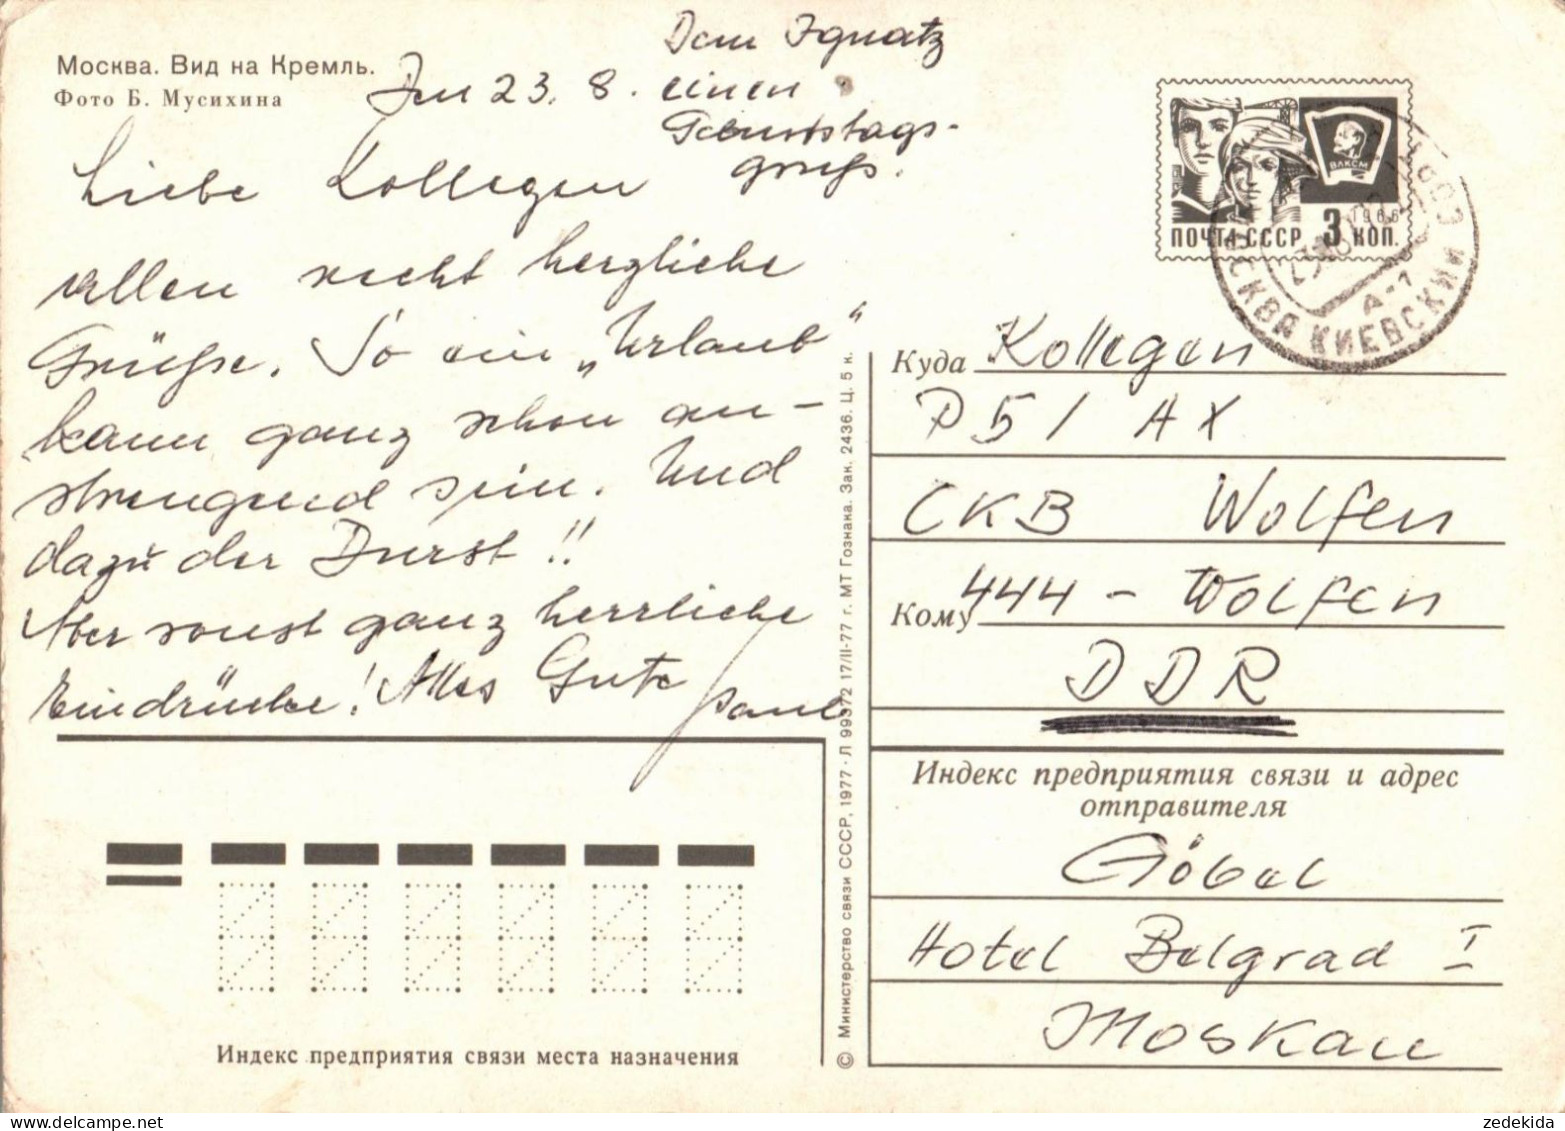 Москва. Вид на Кремль.
Фото Б. Мусихина
Dem Ignatz
einen
Geburtstags-
gruß.
23. 8.
Liebe Kollegen
allen recht herzliche
Grüße. So ein „Urlaub“
kann ganz schön an-
strengend sein. Und
dazu der Durst!!
Aber sonst ganz herrliche
Eindrücke! Alles Gute
Paul
ПОЧТА СССР 3 КОП.
1966
ВЛКСМ
МОСКВА КИЕВСКИЙ
А-1
Куда Kollegen
P 51 AX
CKB Wolfen
Кому 444 - Wolfen
DDR
Индекс предприятия связи и адрес
отправителя
Göbel
Hotel Belgrad I
Moskau
Индекс предприятия связи места назначения
© Министерство связи СССР, 1977 - Л 99372 17/II-77 г. МТ Гознака. Зак. 2436. Ц. 5 к.
zedekida